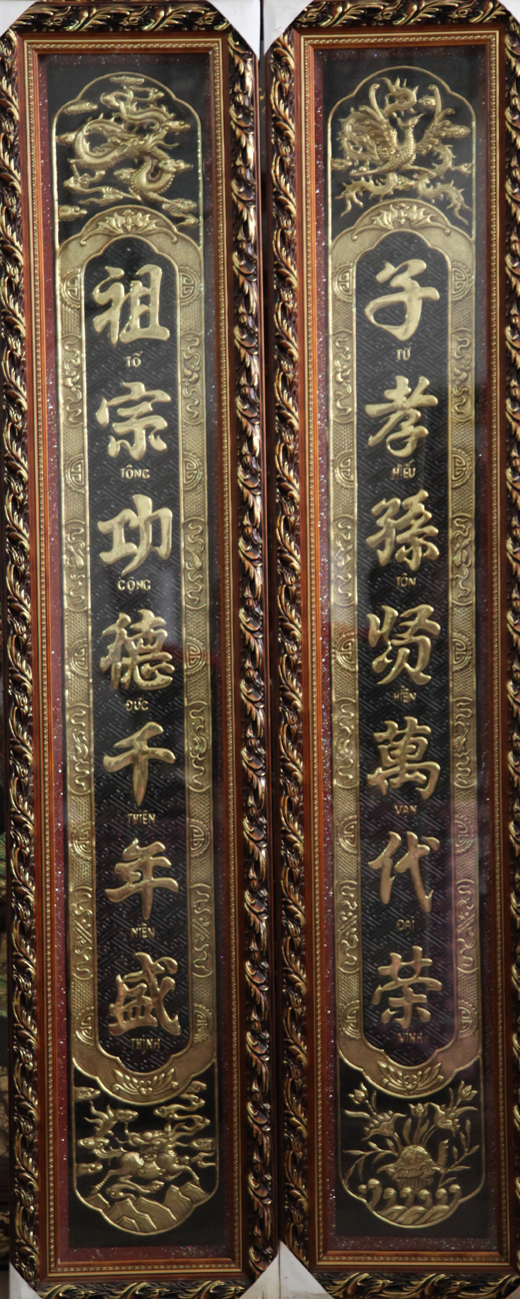 祖
TỔ
宗
TÔNG
功
CÔNG
德
ĐỨC
千
THIÊN
年
NIÊN
盛
THỊNH
子
TỬ
孝
HIẾU
孫
TÔN
贤
HIỀN
萬
VẠN
代
ĐẠI
荣
VINH